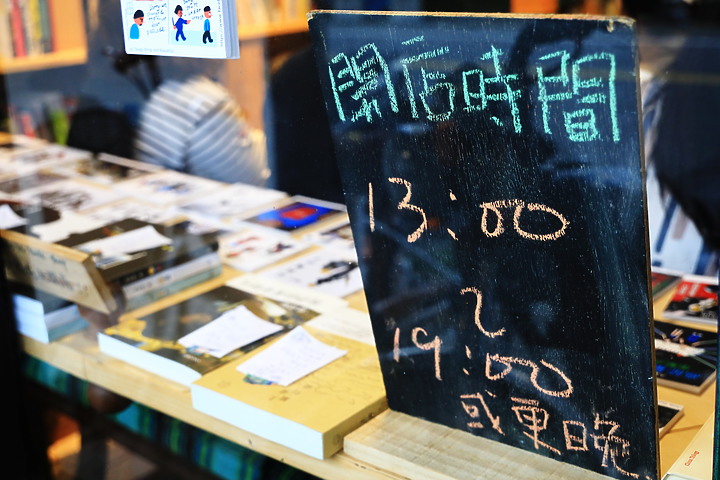 開店時間
13:00
~
19:00
或更晚